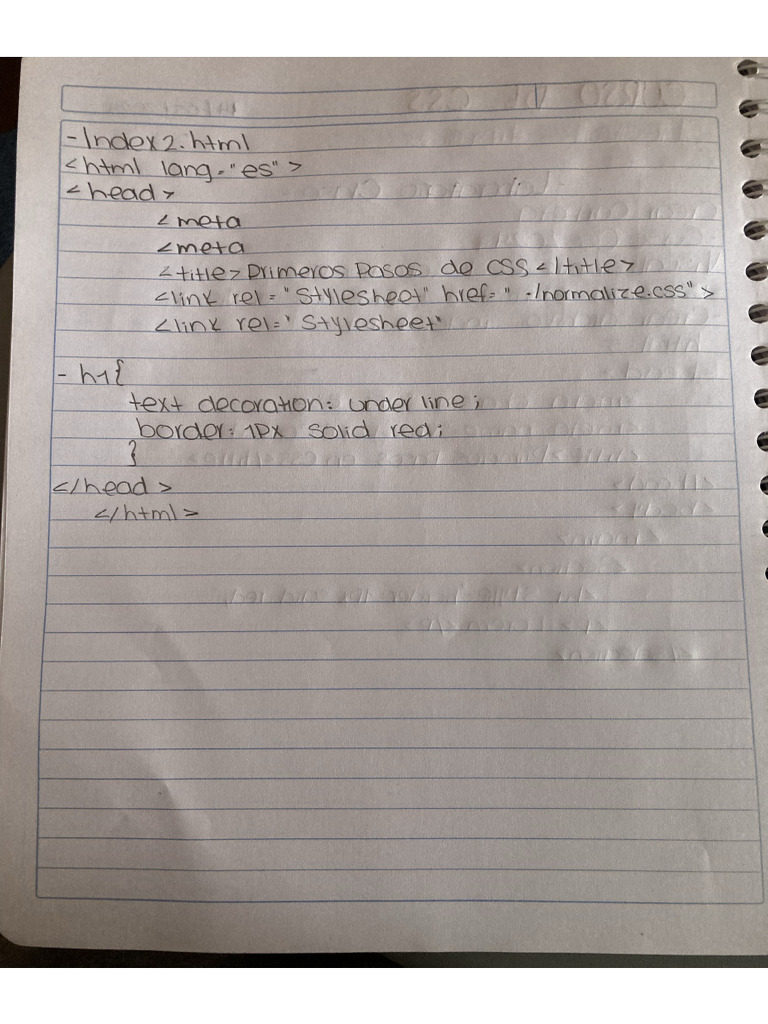 - Index2.html
<html lang="es">
<head>
<meta
<meta
<title>Primeros Pasos de CSS</title>
<link rel="Stylesheet" href="./normalize.css">
<link rel="Stylesheet"
- h1{
text decoration: under line;
border: 1px solid red;
}
</head>
</html>